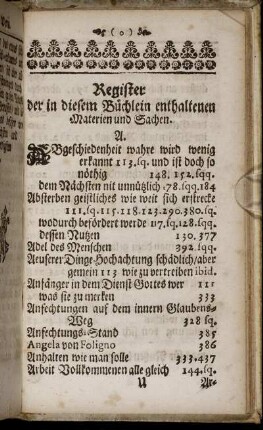 ( 0 )
Register
der in diesem Büchlein enthaltenen
Materien und Sachen.
A.
ABgeschiedenheit wahre wird wenig
erkannt 113.sq. und ist doch so
nöthig 148. 152.sqq.
dem Nächsten nit unnützlich 178.sqq.184
Absterben geistliches wie weit sich erstrecke
111.sq.115.118.123.290.380.sq.
wodurch befördert werde 117.sq.128.sqq.
dessen Nutzen 130.377
Adel des Menschen 392 sqq.
Aeusserer Dinge Hochachtung schädlich/aber
gemein 113 wie zu vertreiben ibid.
Anfänger in dem Dienst Gottes wer 111
was sie zu mercken 333
Anfechtungen auf dem innern Glaubens-
Weg 328 sq.
Anfechtungs-Stand 385
Angela von Foligno 386
Anhalten wie man solle 333.437
Arbeit Vollkommenen alle gleich 144.sq.
U Ar-